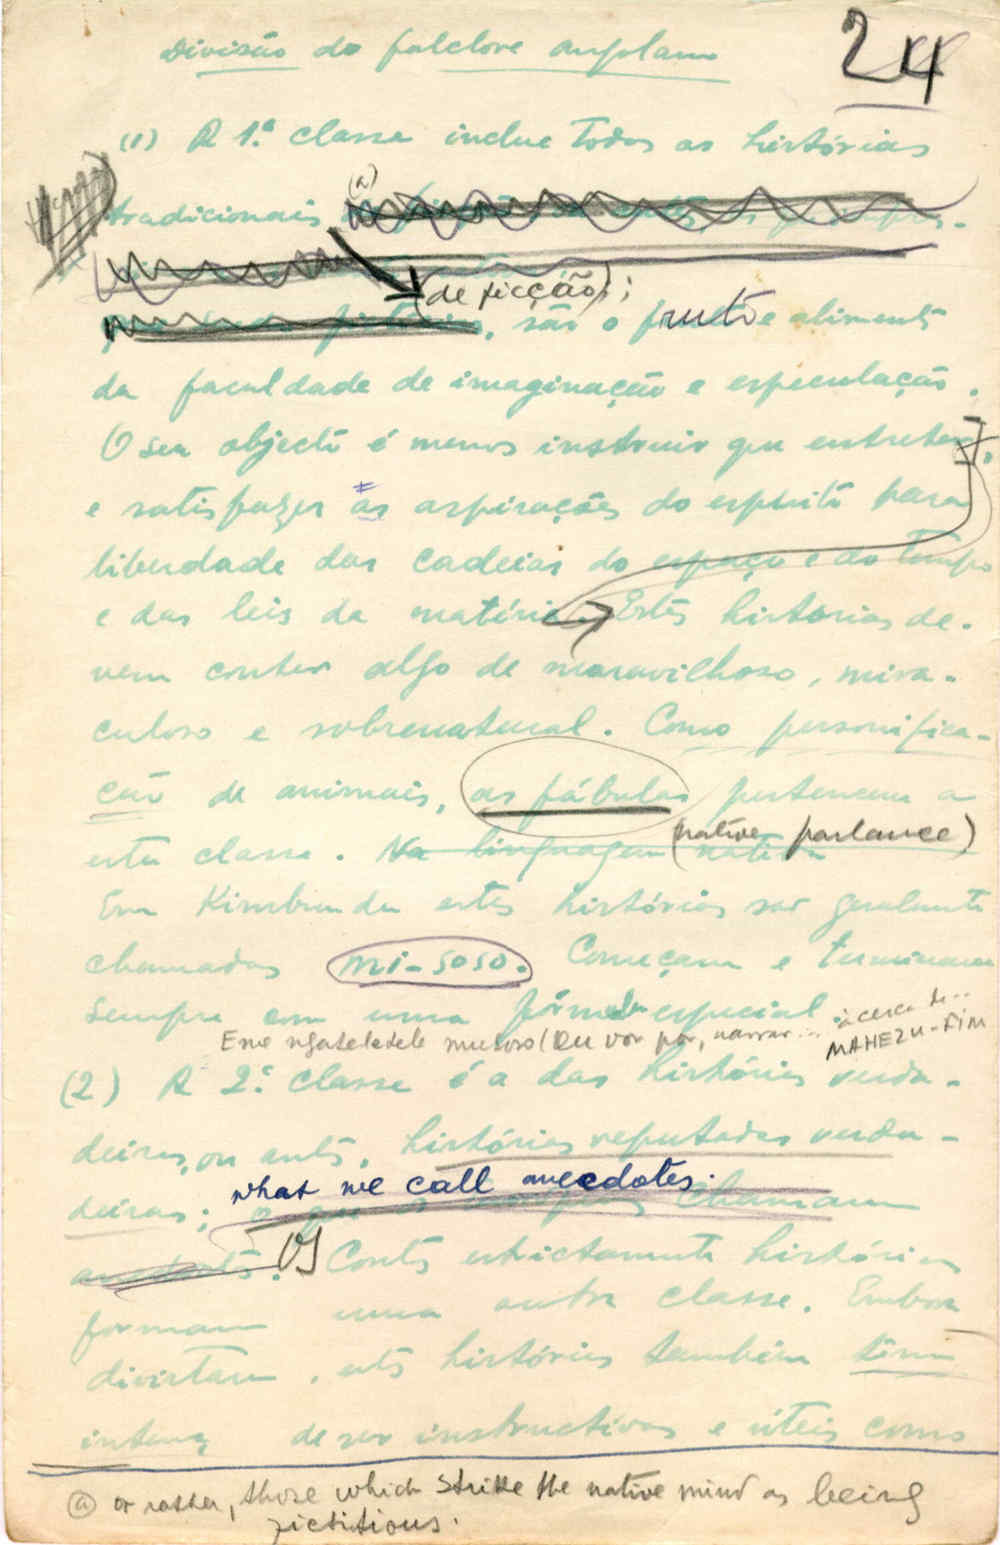 Divisão do folclore angolano
24
(1) A 1.ª classe inclue todas as histórias
tradicionais (a)
(de ficção);
são o fruto e alimento
da faculdade de imaginação e especulação.
O seu objecto é menos instruir que entreter,
e satisfazer as aspirações do espírito para
liberdade das cadeias do espaço e do tempo
e das leis da matéria. Estas histórias de-
vem conter algo de maravilhoso, mira-
culoso e sobrenatural. Como personifica-
ção de animais, as fábulas pertencem a
esta classe. Na linguagem nativa (native parlance)
Em Kimbundu estas histórias são geralmente
chamadas mi-soso. Começam e terminam
sempre com uma fórmula especial.
Eme ngateletele musoso (Eu vou pôr, narrar... àcerca de..
MAHEZU - FIM
(2) A 2.ª classe é a das histórias verda-
deiras, ou antes, histórias reputadas verda-
what we call anecdotes.
deiras; o que chamam
Os Contos estrictamente histórias
formam uma outra classe. Embora
divirtam, estas histórias também têm
intenç de ser instructivas e úteis como
(a) or rather, those which strike the native mind as being
fictitious.